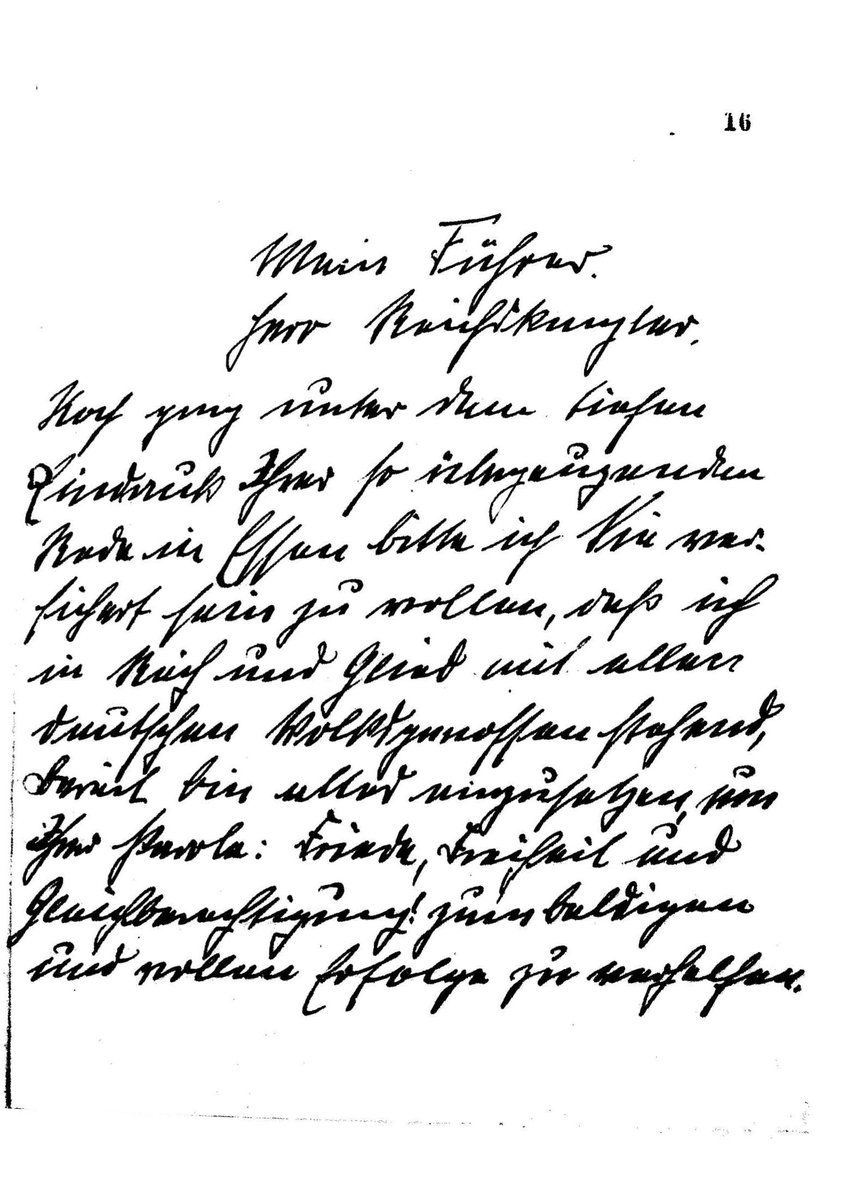 16
Mein Führer.
Herr Reichskanzler.
Noch ganz unter dem tiefen
Eindruck Ihrer so überzeugenden
Rede in Essen bitte ich Sie ver-
sichert sein zu wollen, daß ich
in Reih und Glied mit allen
deutschen Volksgenossen stehend,
bereit bin alles einzusetzen, um
Ihrer Parole: Friede, Freiheit und
Gleichberechtigung! zum baldigen
und vollen Erfolge zu verhelfen.